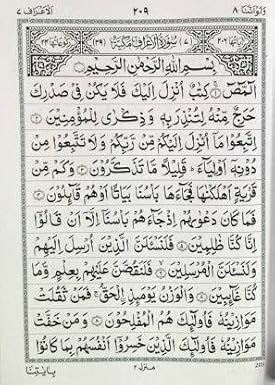 وَلَوْ اَنَّنَا ٨ ٢٠٩ اَلْاَعْرَاف ٧
اٰيَاتُهَا ٢٠٦ (٧) سُوْرَةُ الْاَعْرَافِ مَكِّيَّةٌ (٣٩) رُكُوْعَاتُهَا ٢٤
بِسْمِ اللهِ الرَّحْمٰنِ الرَّحِيْمِ
الٓمّٓصٓ ١ كِتٰبٌ اُنْزِلَ اِلَيْكَ فَلَا يَكُنْ فِيْ صَدْرِكَ
حَرَجٌ مِّنْهُ لِتُنْذِرَ بِهٖ وَ ذِكْرٰى لِلْمُؤْمِنِيْنَ ٢
اِتَّبِعُوْا مَآ اُنْزِلَ اِلَيْكُمْ مِّنْ رَّبِّكُمْ وَلَا تَتَّبِعُوْا مِنْ
دُوْنِهٖٓ اَوْلِيَآءَ ؕ قَلِيْلًا مَّا تَذَكَّرُوْنَ ٣ وَ كَمْ مِّنْ
قَرْيَةٍ اَهْلَكْنٰهَا فَجَآءَهَا بَاْسُنَا بَيَاتًا اَوْ هُمْ قَآئِلُوْنَ ٤
فَمَا كَانَ دَعْوٰىهُمْ اِذْ جَآءَهُمْ بَاْسُنَآ اِلَّآ اَنْ قَالُوْٓا
اِنَّا كُنَّا ظٰلِمِيْنَ ٥ فَلَنَسْـَٔلَنَّ الَّذِيْنَ اُرْسِلَ اِلَيْهِمْ
وَ لَنَسْـَٔلَنَّ الْمُرْسَلِيْنَ ٦ فَلَنَقُصَّنَّ عَلَيْهِمْ بِعِلْمٍ وَّ مَا
كُنَّا غَآئِبِيْنَ ٧ وَ الْوَزْنُ يَوْمَئِذِ ِۨالْحَقُّ ۚ فَمَنْ ثَقُلَتْ
مَوَازِيْنُهٗ فَاُولٰٓئِكَ هُمُ الْمُفْلِحُوْنَ ٨ وَ مَنْ خَفَّتْ
مَوَازِيْنُهٗ فَاُولٰٓئِكَ الَّذِيْنَ خَسِرُوْٓا اَنْفُسَهُمْ بِمَا كَانُوْا
منزل ٢ بِاٰيٰتِنَا
209